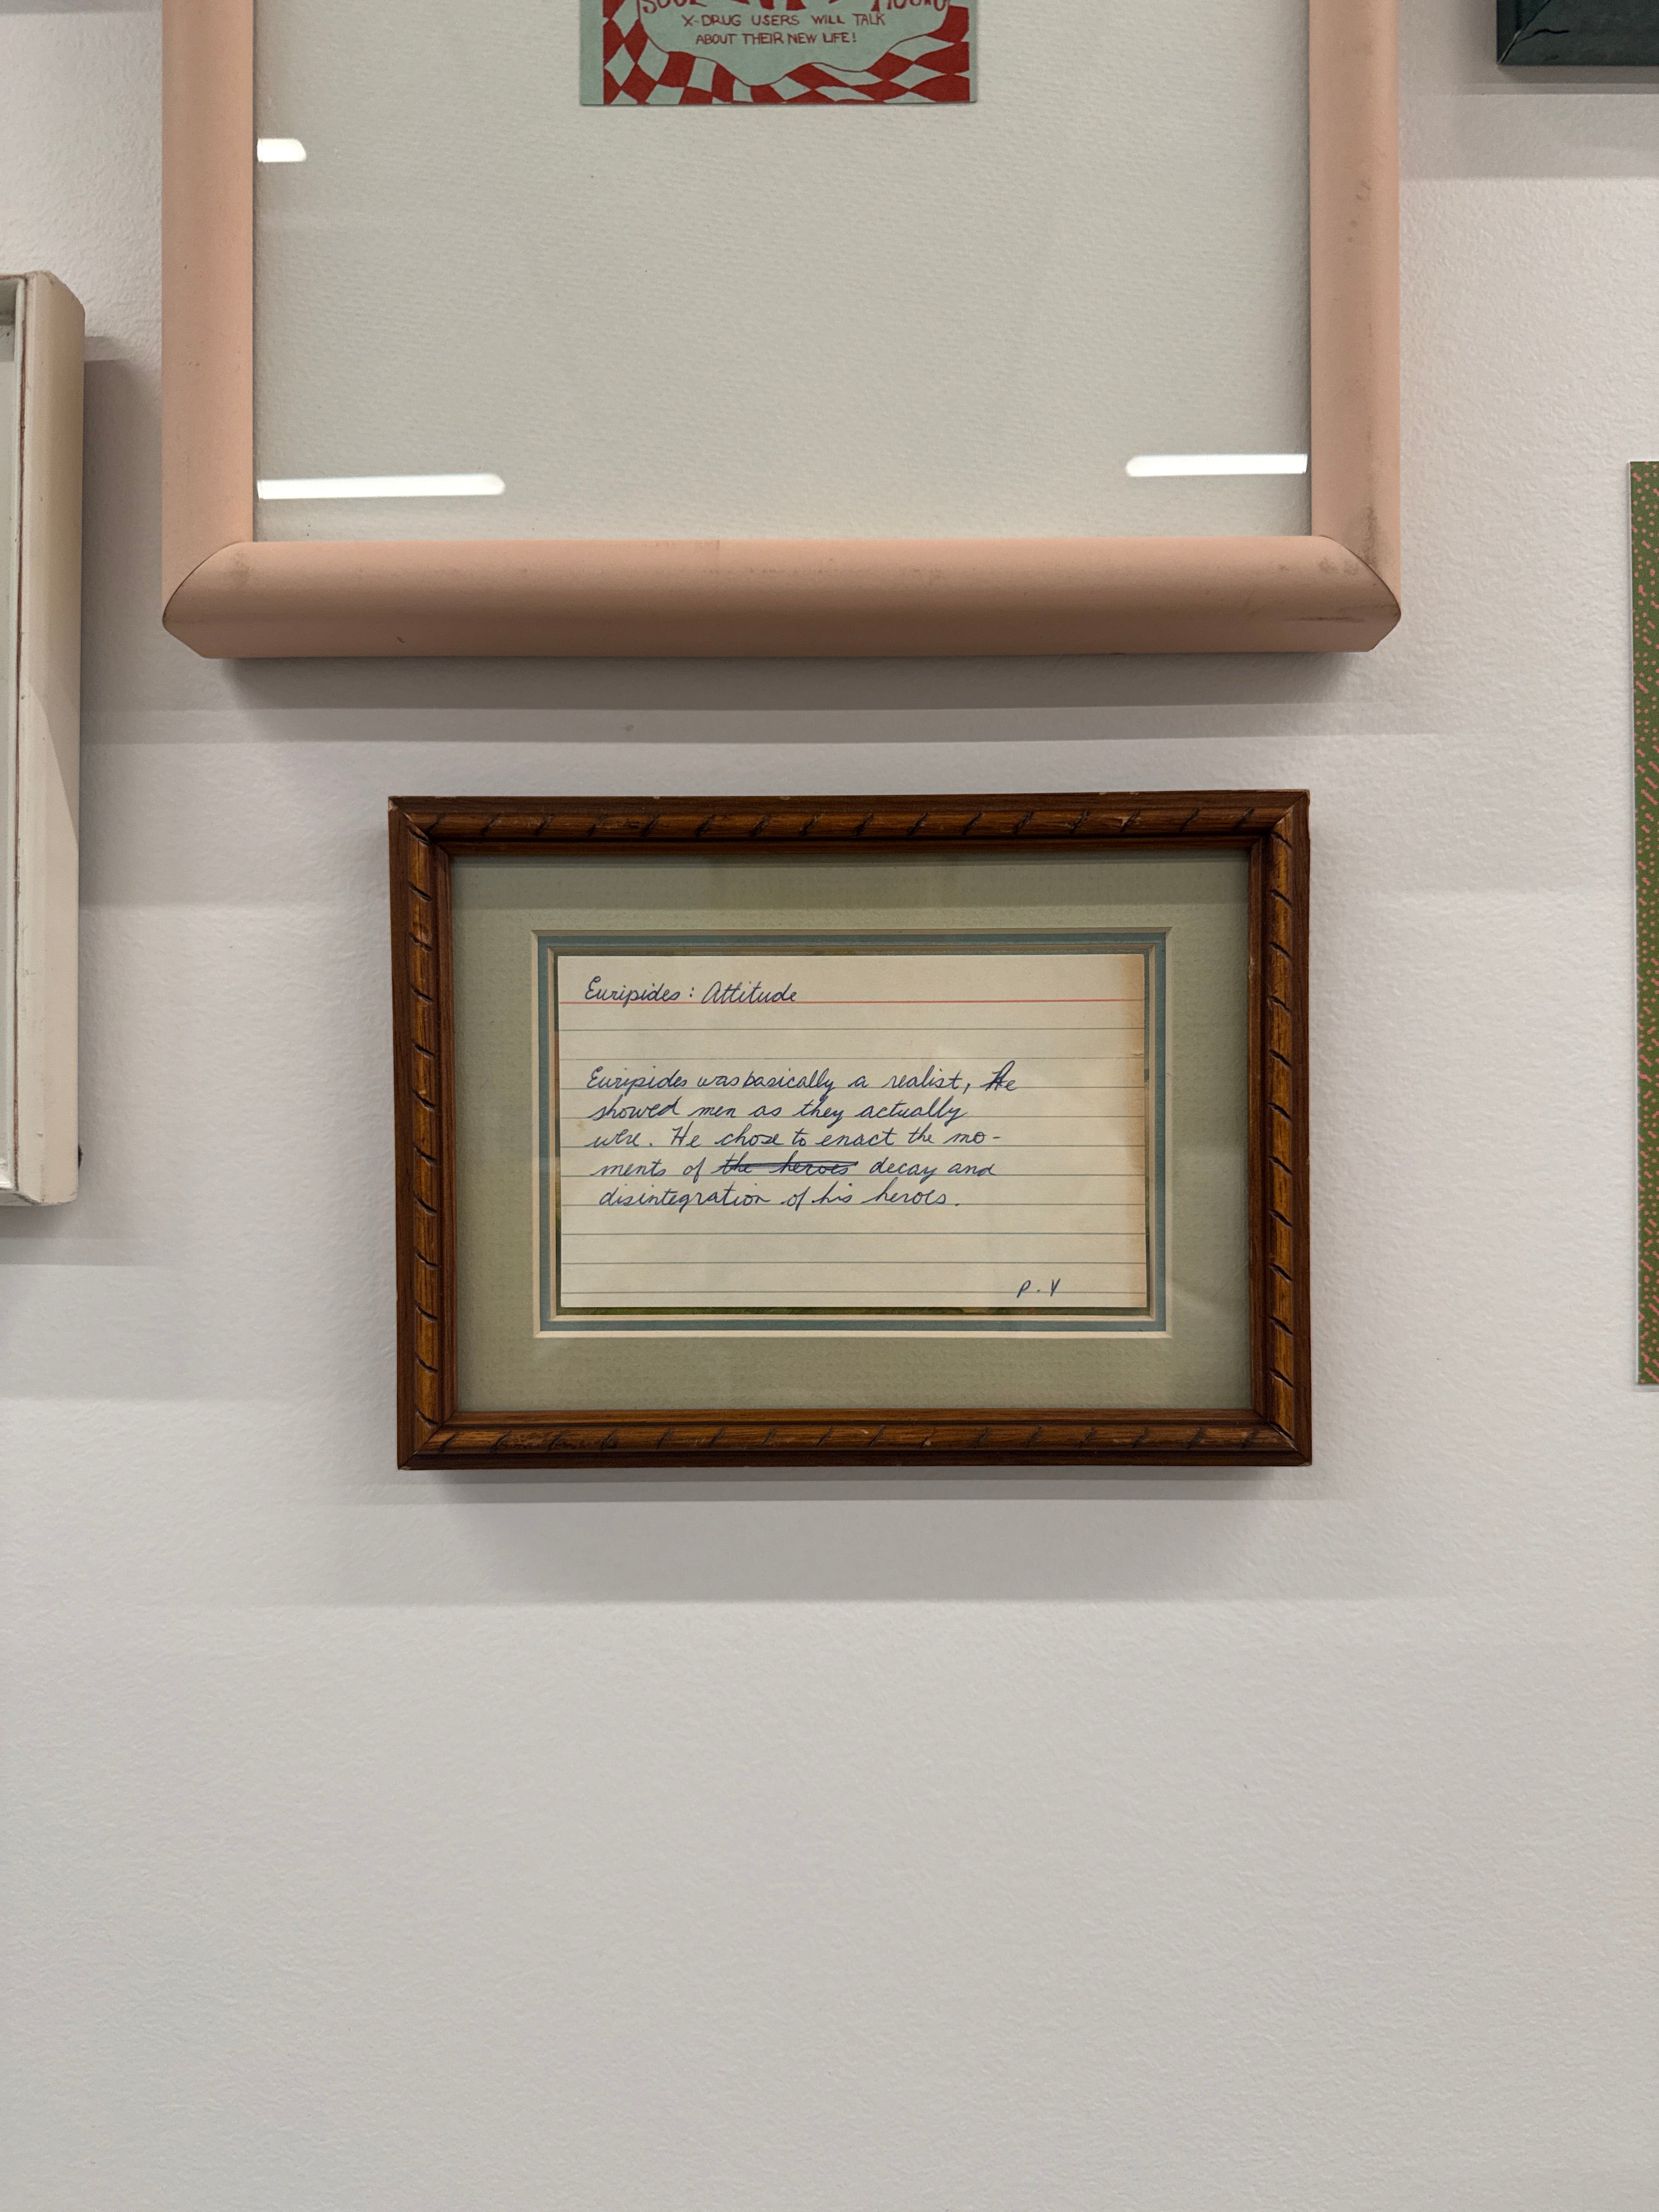 X-DRUG USERS WILL TALK
ABOUT THEIR NEW LIFE!
Euripides: Attitude
Euripides was basically a realist, He
showed men as they actually
were. He chose to enact the mo-
ments of the heroes decay and
disintegration of his heroes.
P. V